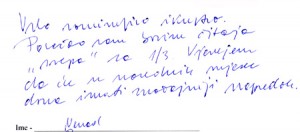 Vrlo zanimljivo iskustvo.
Povećao sam brzinu čitanja
"svega" za 1/3. Vjerujem
da će u narednih mjesec
dana imati značajniji napredak.
Ime -